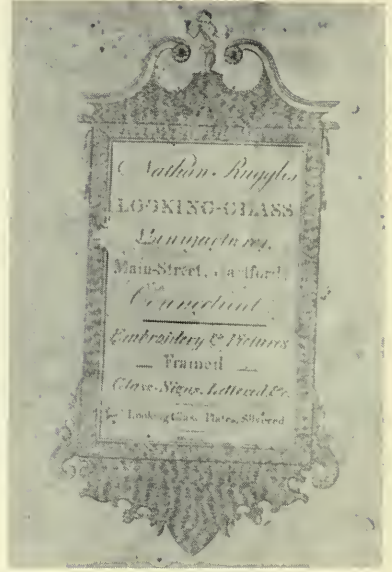 Nathan Ruggles
LOOKING-GLASS
Manufacturer,
Main-Street, Hartford,
Connecticut
Embroidery & Pictures
Framed
Glass-Signs, Lettered, &c.
Looking Glass Plates, Silvered